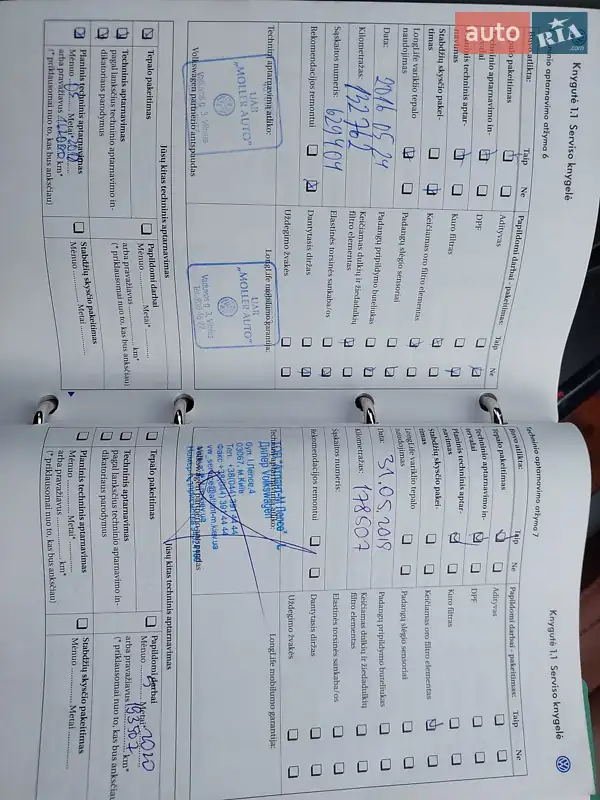 auto RIA .com
Knygutė 1.1 Serviso knygelė
Techninio aptarnavimo atžyma 6
Buvo atlikta: Taip Ne
Tepalo pakeitimas
Techninio aptarnavimo in-
tervalai
Planinis techninis aptar-
navimas
Stabdžių skysčio pakei-
timas
LongLife variklio tepalo
naudojimas
Data: 2016 05 24
Kilometražas: 132762
Sąskaitos numeris: 629404
Rekomendacijos remontui
Techninį aptarnavimą atliko:
UAB
„MOLLER AUTO"
Volkswagen partnerio antspaudas
Papildomi darbai - pakeitimas: Taip Ne
Adityvas
DPF
Kuro filtras
Keičiamas oro filtro elementas
Padangų slėgio sensoriai
Padangų pripildymo buteliukas
Keičiamas dulkių ir žiedadulkių
filtro elementas
Elastinės torsinės sankaba/os
Dantytasis diržas
Uždegimo žvakės
LongLife mobilumo garantija:
UAB
„MOLLER AUTO"
Jūsų kitas techninis aptarnavimas
Tepalo pakeitimas
Techninis aptarnavimas
pagal lanksčius techninio aptarnavimo in-
dikatoriaus parodymus
Planinis techninis aptarnavimas
Mėnuo Metai*
arba pravažiavus km*
(* priklausomai nuo to, kas bus anksčiau)
Papildomi darbai
Mėnuo Metai*
arba pravažiavus km*
(* priklausomai nuo to, kas bus anksčiau)
Stabdžių skysčio pakeitimas
Mėnuo Metai
Knygutė 1.1 Serviso knygelė
Techninio aptarnavimo atžyma 7
Buvo atlikta: Taip Ne
Tepalo pakeitimas
Techninio aptarnavimo in-
tervalai
Planinis techninis aptar-
navimas
Stabdžių skysčio pakei-
timas
LongLife variklio tepalo
naudojimas
Data: 31.05.2019
Kilometražas: 178507
Sąskaitos numeris:
Rekomendacijos remontui
Дилер Volkswagen
03067, м. Київ
Papildomi darbai - pakeitimas: Taip Ne
Adityvas
DPF
Kuro filtras
Keičiamas oro filtro elementas
Padangų slėgio sensoriai
Padangų pripildymo buteliukas
Keičiamas dulkių ir žiedadulkių
filtro elementas
Elastinės torsinės sankaba/os
Dantytasis diržas
Uždegimo žvakės
LongLife mobilumo garantija:
Jūsų kitas techninis aptarnavimas
Tepalo pakeitimas
Techninis aptarnavimas
pagal lanksčius techninio aptarnavimo in-
dikatoriaus parodymus
Planinis techninis aptarnavimas
Mėnuo Metai*
arba pravažiavus km*
(* priklausomai nuo to, kas bus anksčiau)
Papildomi darbai
Mėnuo Metai* 2020
arba pravažiavus 193507 km*
(* priklausomai nuo to, kas bus anksčiau)
Stabdžių skysčio pakeitimas
Mėnuo Metai